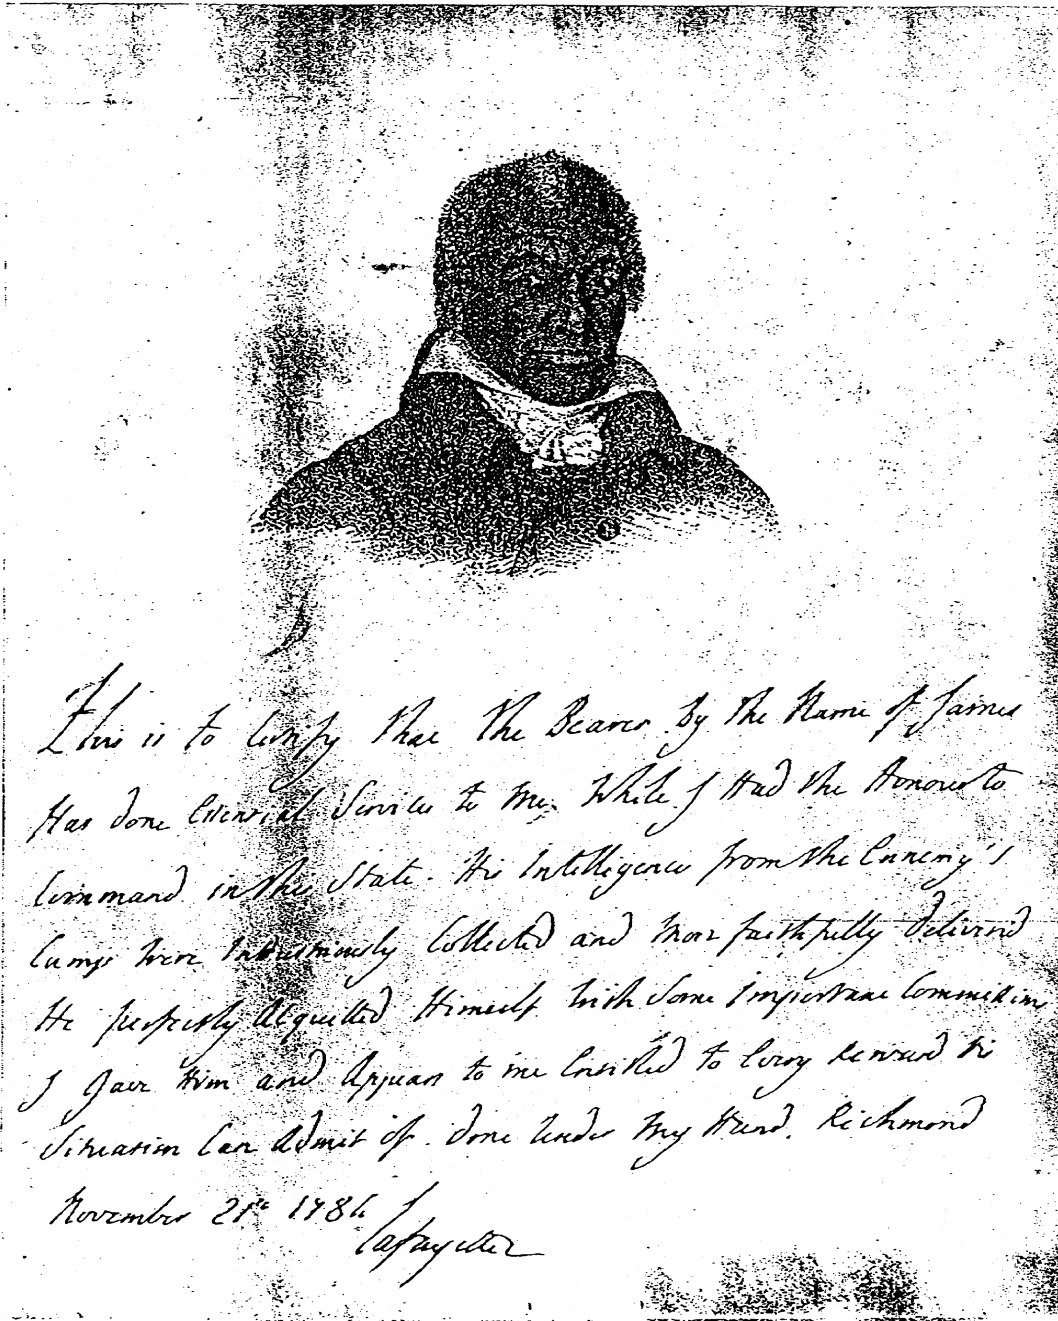 This is to Certify that the Bearer By the Name of James
Has done Essential Services to me While I Had the Honour to
Command in this State. His Intelligences from the Ennemy's
Camp were Industriously Collected and More faithfully deliver'd
He perfectly Acquitted Himself with Some Important Commissions
I Gave Him and Appears to me Entitled to Every Reward his
Situation Can Admit of. done Under My Hand, Richmond
November 21st 1784
Lafayette